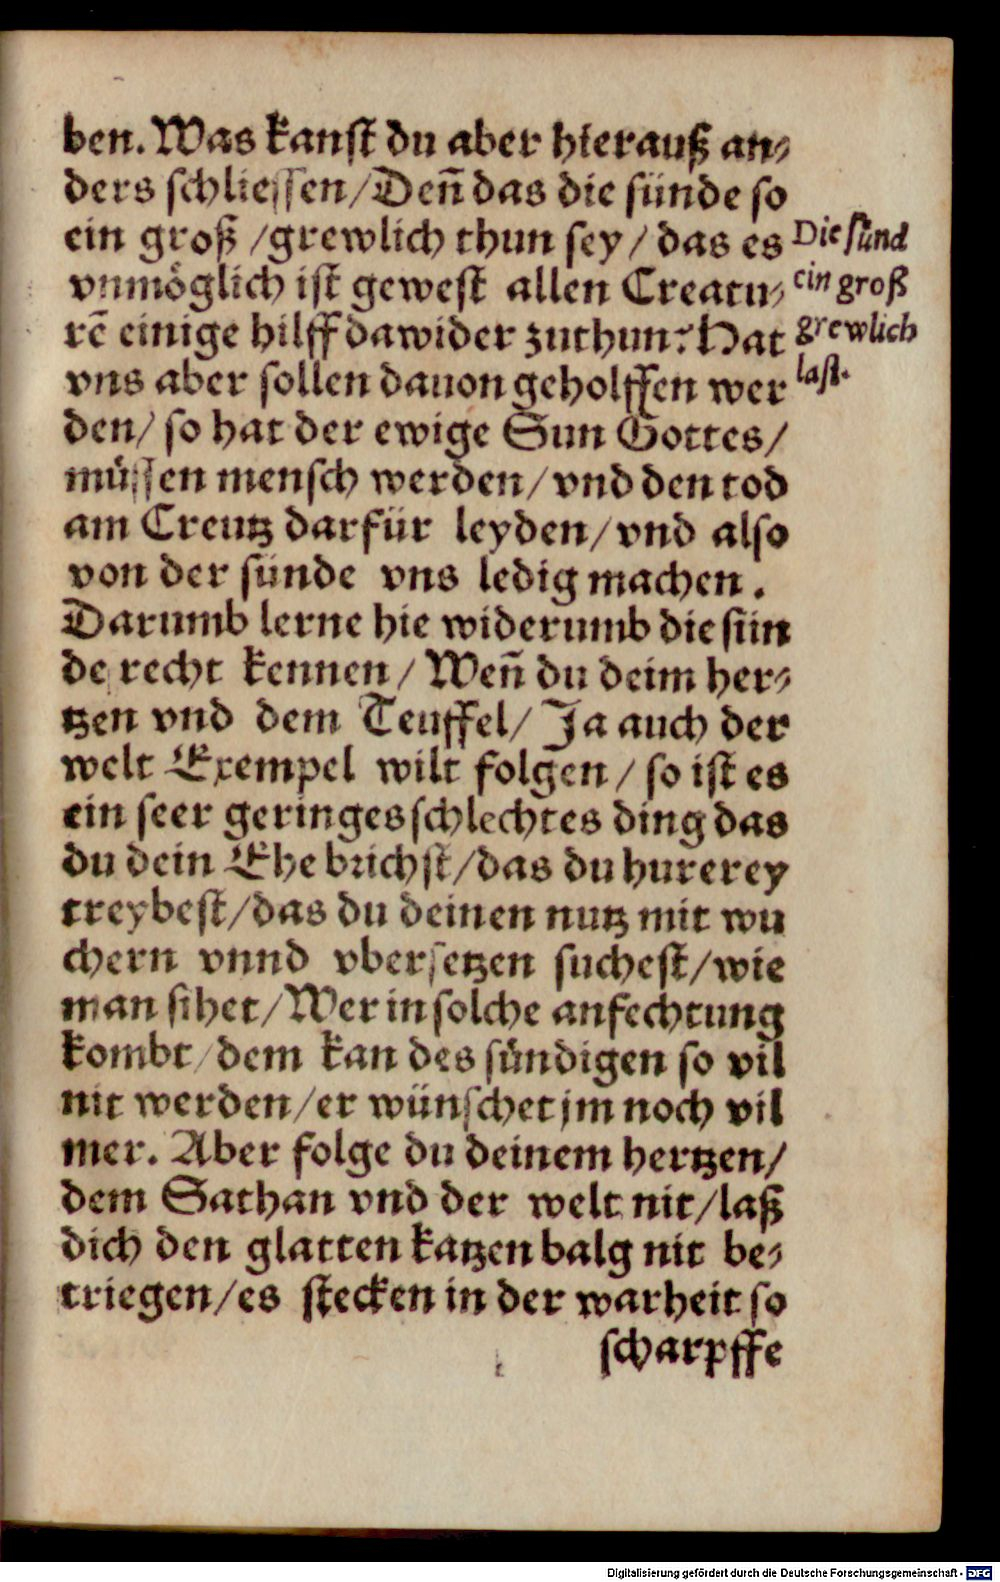 ben. Was kanst du aber hierauß an⸗
ders schliessen/ Deñ das die sünde so
ein groß /grewlich thun sey/ das es
vnmöglich ist gewest allen Creatu⸗
rē einige hilff dawider zuthun? Hat
vns aber sollen dauon geholffen wer
den/ so hat der ewige Sun Gottes/
müssen mensch werden/ vnd den tod
am Creutz darfür leyden/ vnd also
von der sünde vns ledig machen.
Darumb lerne hie widerumb die sün
de recht kennen/ Weñ du deim her⸗
tzen vnd dem Teuffel/ Ja auch der
welt Exempel wilt folgen/ so ist es
ein seer geringes schlechtes ding das
du dein Ehe brichst/ das du hurerey
treybest/ das du deinen nutz mit wu
chern vnnd vbersetzen suchest/ wie
man sihet/ Wer in solche anfechtung
kombt/ dem kan des sündigen so vil
nit werden/ er wünschet jm noch vil
mer. Aber folge du deinem hertzen/
dem Sathan vnd der welt nit/ laß
dich den glatten katzen balg nit be⸗
triegen/ es stecken in der warheit so
scharpffe
Die sünd
ein groß
grewlich
last.
Digitalisierung gefördert durch die Deutsche Forschungsgemeinschaft - DFG